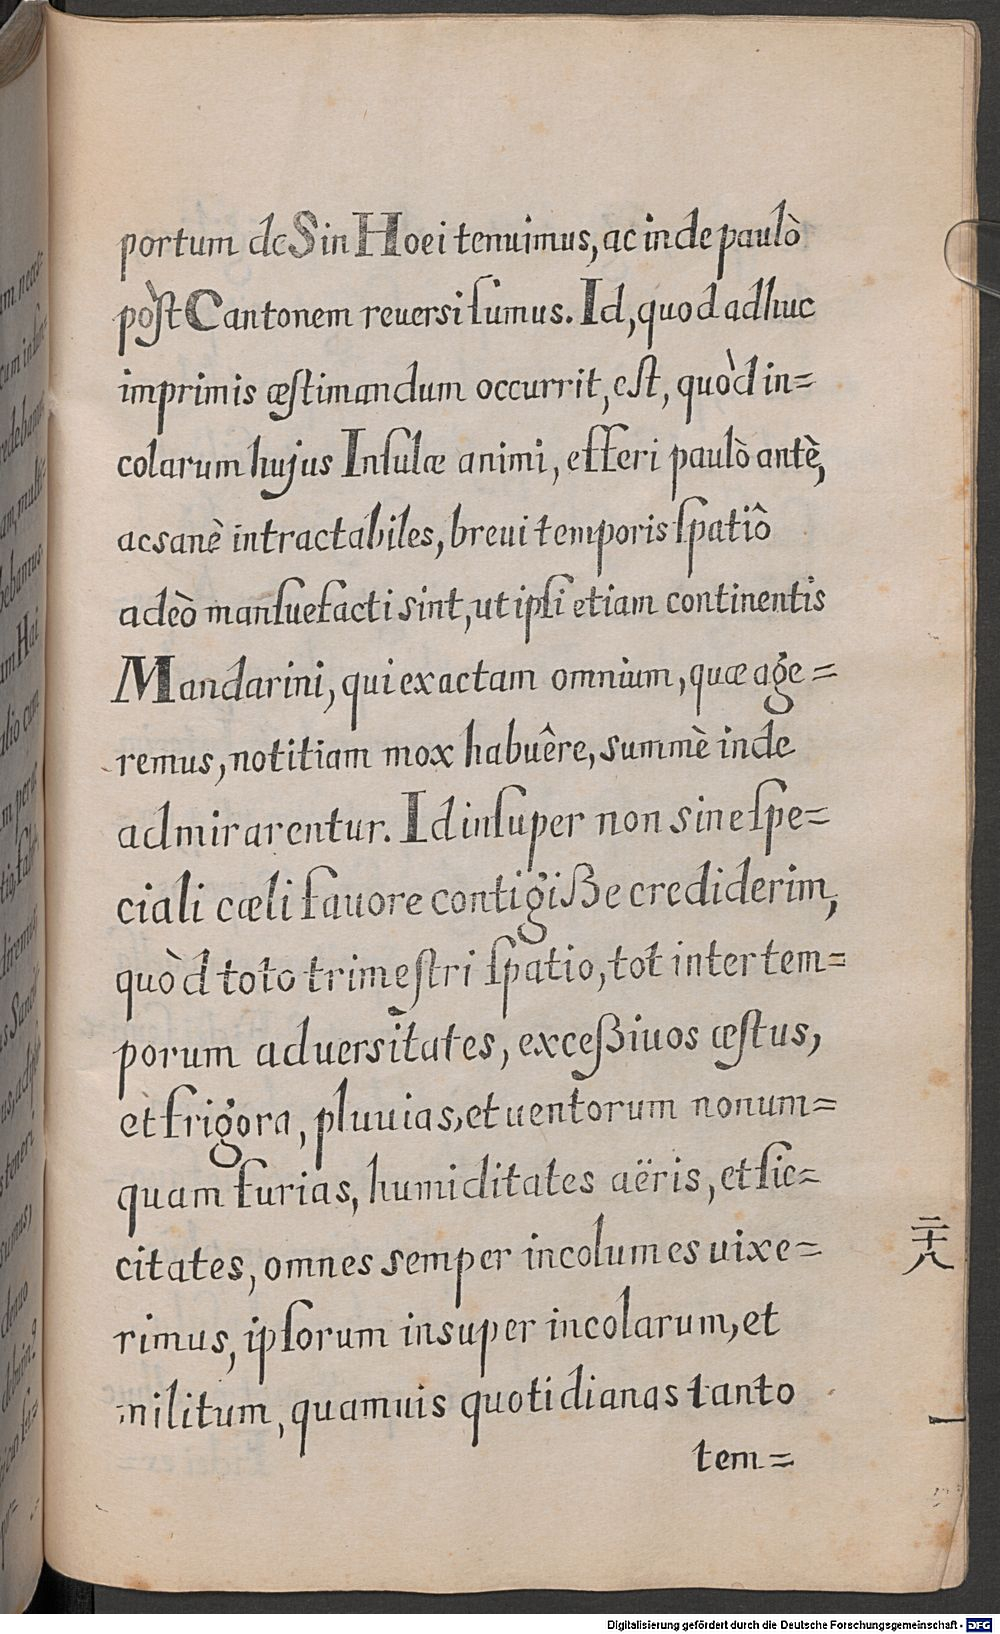 portum de Sin Hoei tenuimus, ac inde paulò
pòſt Cantonem reuersi ſumus. Id, quod adhuc
imprimis æſtimandum occurrit, eſt, quòd in=
colarum hujus Inſulæ animi, efferi paulò antè,
ac sanè intractabiles, breui temporis ſpatiô
adeò manſuefacti sint, ut ipſi etiam continentis
Mandarini, qui exactam omnium, quæ age=
remus, notitiam mox habuêre, summè inde
admirarentur. Id inſuper non sine ſpe=
ciali cæli fauore contigiße crediderim,
quòd toto trimeſtri ſpatio, tot inter tem=
porum aduersitates, exceßiuos æſtus,
et frigora, pluuias, et uentorum nonum=
quam furias, humiditates aëris, et ſic=
citates, omnes semper incolumes uixe=
rimus, ipſorum insuper incolarum, et
militum, quamuis quotidianas tanto
tem=
二十八
Digitalisierung gefördert durch die Deutsche Forschungsgemeinschaft - DFG